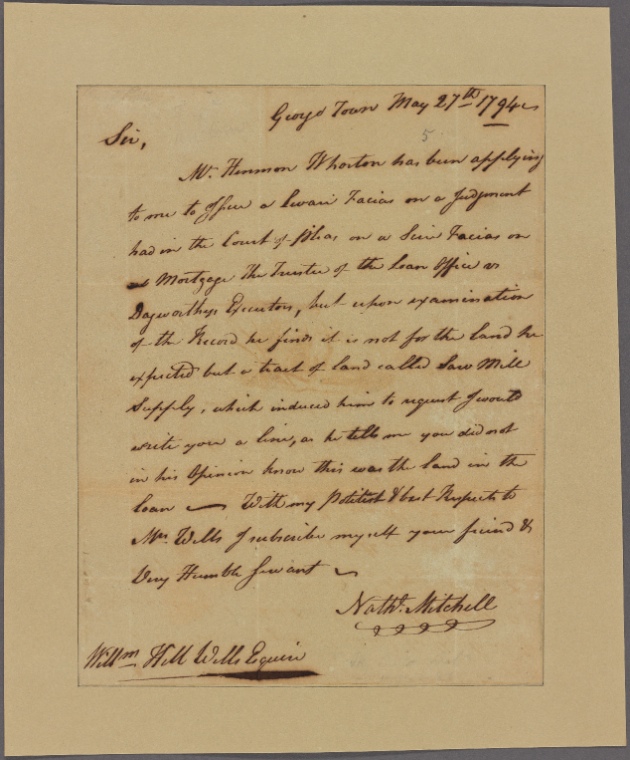 George Town May 27th 1794
5
Sir,
Mr. Hinmon Wharton has been applying
to me to Issue a Levari Facias on a Judgment
had in the Court of Pleas on a Scire Facias on
Mortgage The Trustee of the Loan Office vs
Dagworthys Executors, but upon examination
of the Record he finds it is not for the land he
expected but a tract of land called Saw Mill
Supply, which induced him to request I would
write you a line, as he tells me you did not
in his Opinion know this was the land in the
loan — With my Politest & best Respects to
Mrs. Wells I subscribe myself your friend &
Very Humble Servant
Nathl. Mitchell
Willm Hill Wells Esquire